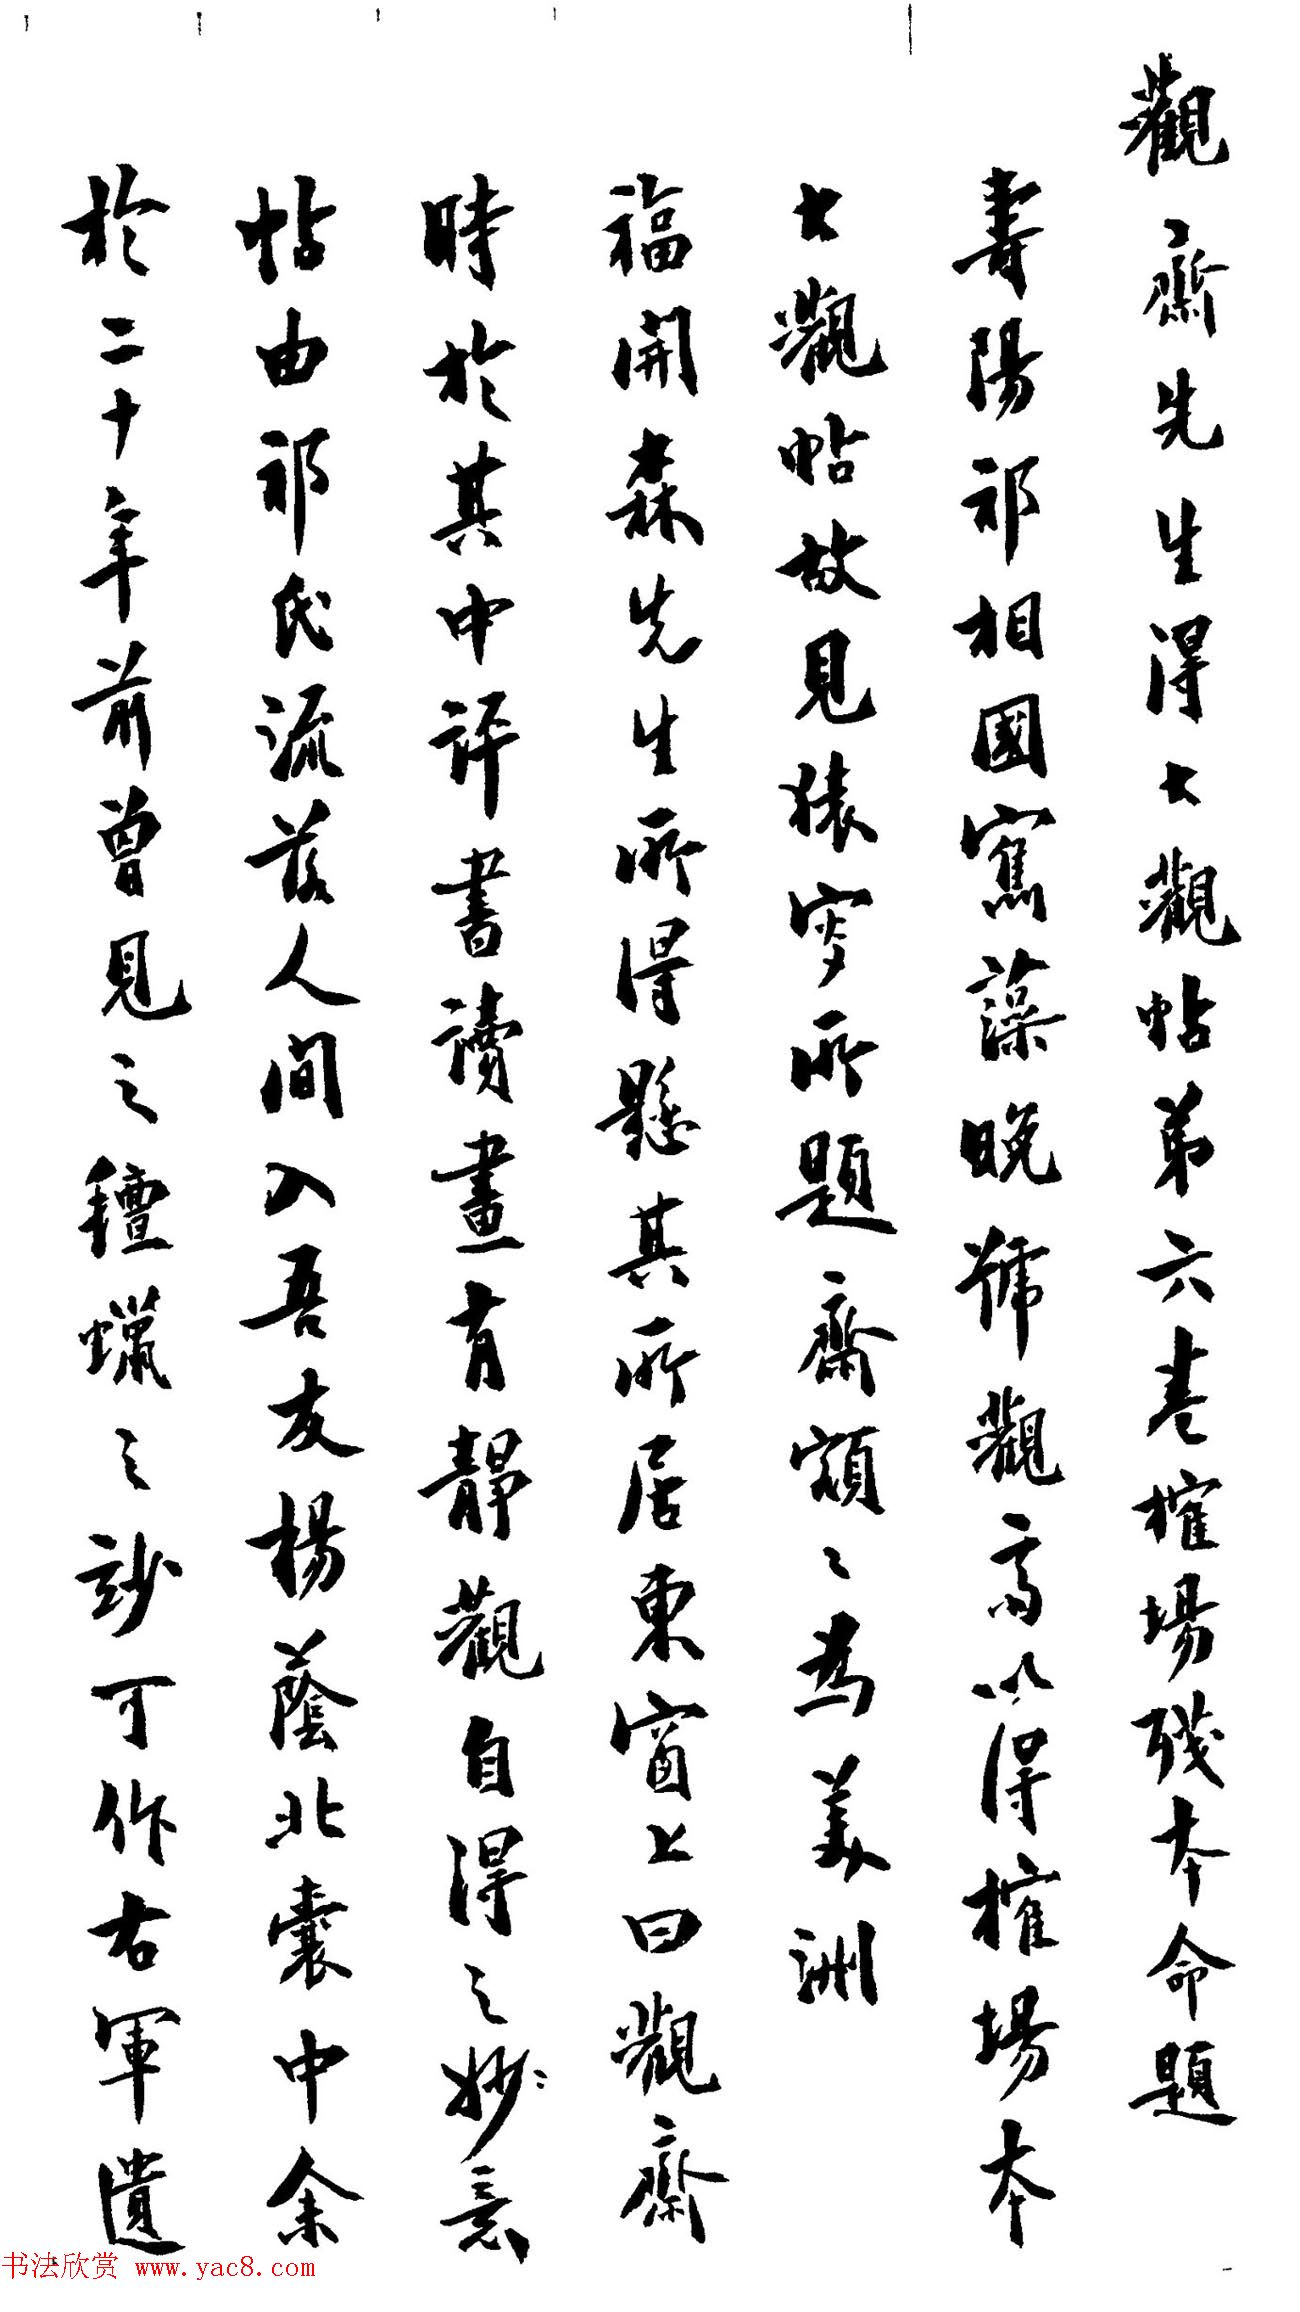 觀齋先生得大觀帖第六卷榷場殘本命題
壽陽祁相國寯藻晚號觀齋以得榷場本
大觀帖故見猿叟所題齋額〻為美洲
福開森先生所得懸其所居東窗上曰觀齋
時於其中評書讀畫有靜觀自得之妙〻意
帖由祁氏流落人間入吾友楊蔭北囊中余
於二十年前曾見之氈蠟之玅可作右軍遺
书法欣赏 www.yac8.com